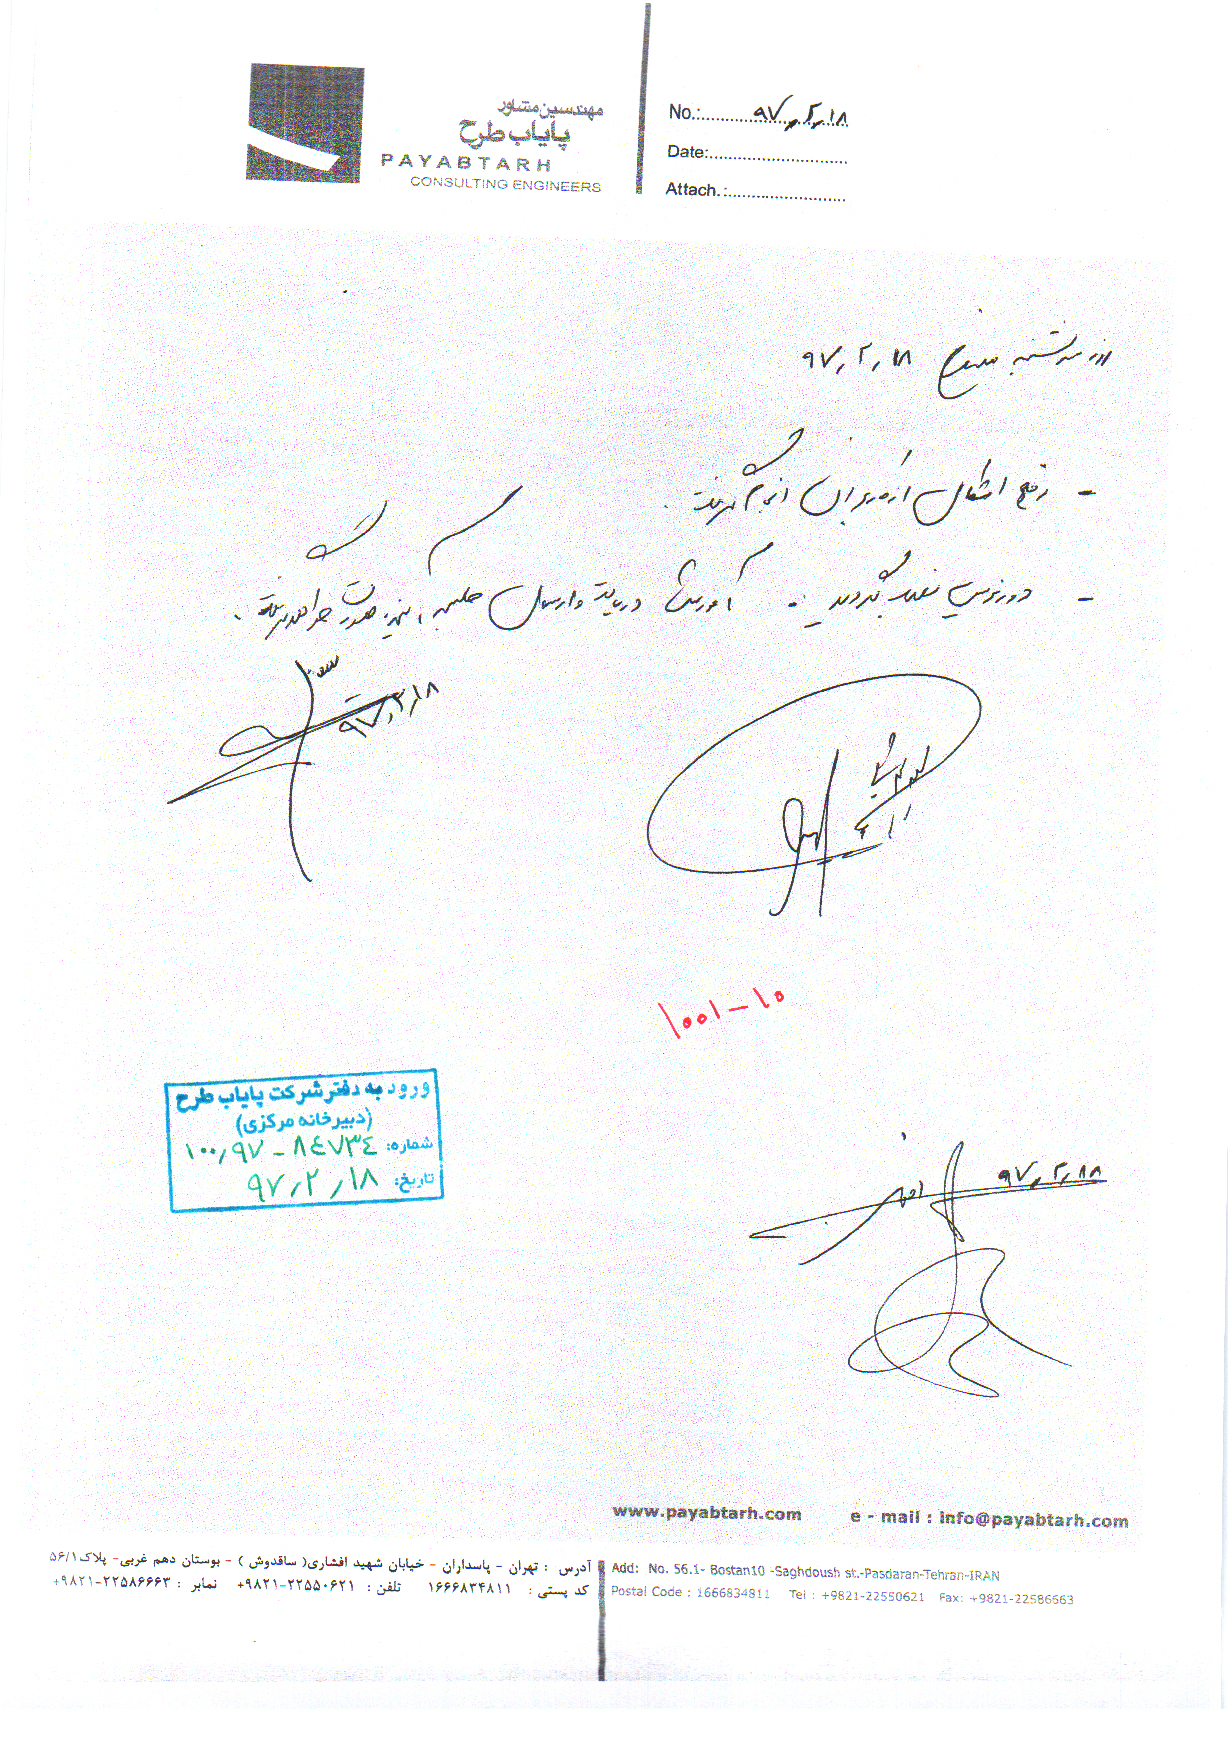 مهندسین مشاور
پایاب طرح
PAYABTARH
CONSULTING ENGINEERS
No.: ۹۷,۲,۱۸
Date:
Attach.:
روز سه شنبه مورخ ۹۷,۲,۱۸
- رفع اشکال از دوربران انجام گرفت.
- دورنویس نصب گردید. آموزش دریافت و ارسال عکس نیز صورت خواهد گرفت.
۹۷,۲,۱۸
۱۰۰۱-۱۰
ورود به دفتر شرکت پایاب طرح
(دبیرخانه مرکزی)
شماره: ۱۰۰,۹۷ - ۸۴۷۳۴
تاریخ: ۹۷,۲,۱۸
۹۷,۲,۱۸
www.payabtarh.com e - mail : info@payabtarh.com
آدرس : تهران - پاسداران - خیابان شهید افشاری( ساقدوش ) - بوستان دهم غربی- پلاک ۵۶/۱
کد پستی : ۱۶۶۶۸۳۴۸۱۱ تلفن : ۲۲۵۵۰۶۲۱-۹۸۲۱+ نمابر : ۲۲۵۸۶۶۶۳-۹۸۲۱+
Add: No. 56.1- Bostan10 -Saghdoush st.-Pasdaran-Tehran-IRAN
Postal Code : 1666834811 Tel : +9821-22550621 Fax: +9821-22586663